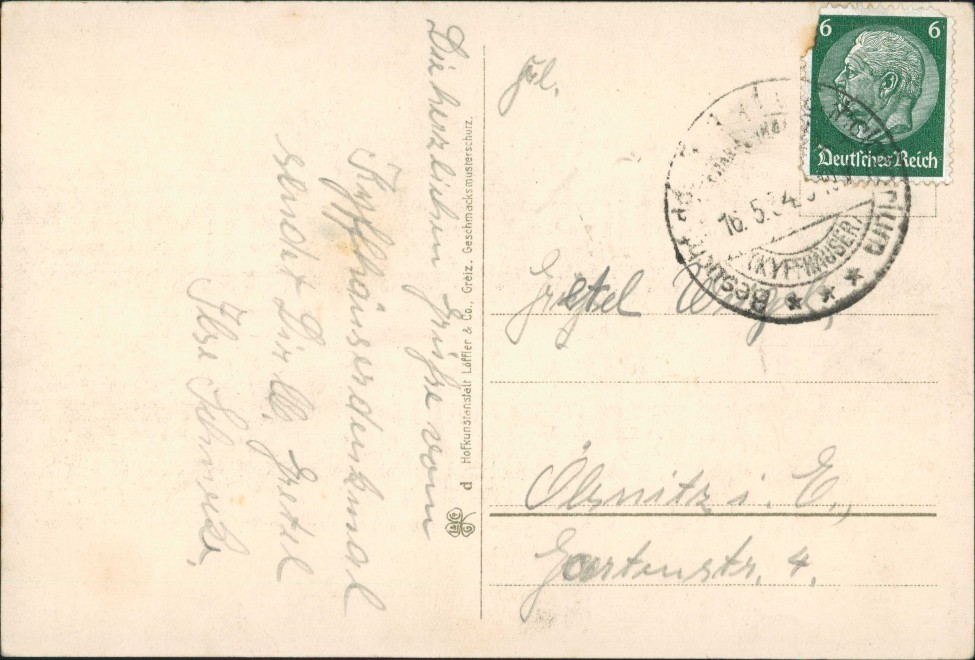 Die herzlichen Grüße vom
Kyffhäuserdenkmal
sendet Dir lb. Gretel
Ilse
d Hofkunstanstalt Löffler & Co., Greiz. Geschmacksmusterschutz.
6 6
Deutsches Reich
16. 5. 34
(KYFFHÄUSER)
Frl.
Gretel
Ölsnitz i. E.,
Gartenstr. 4.